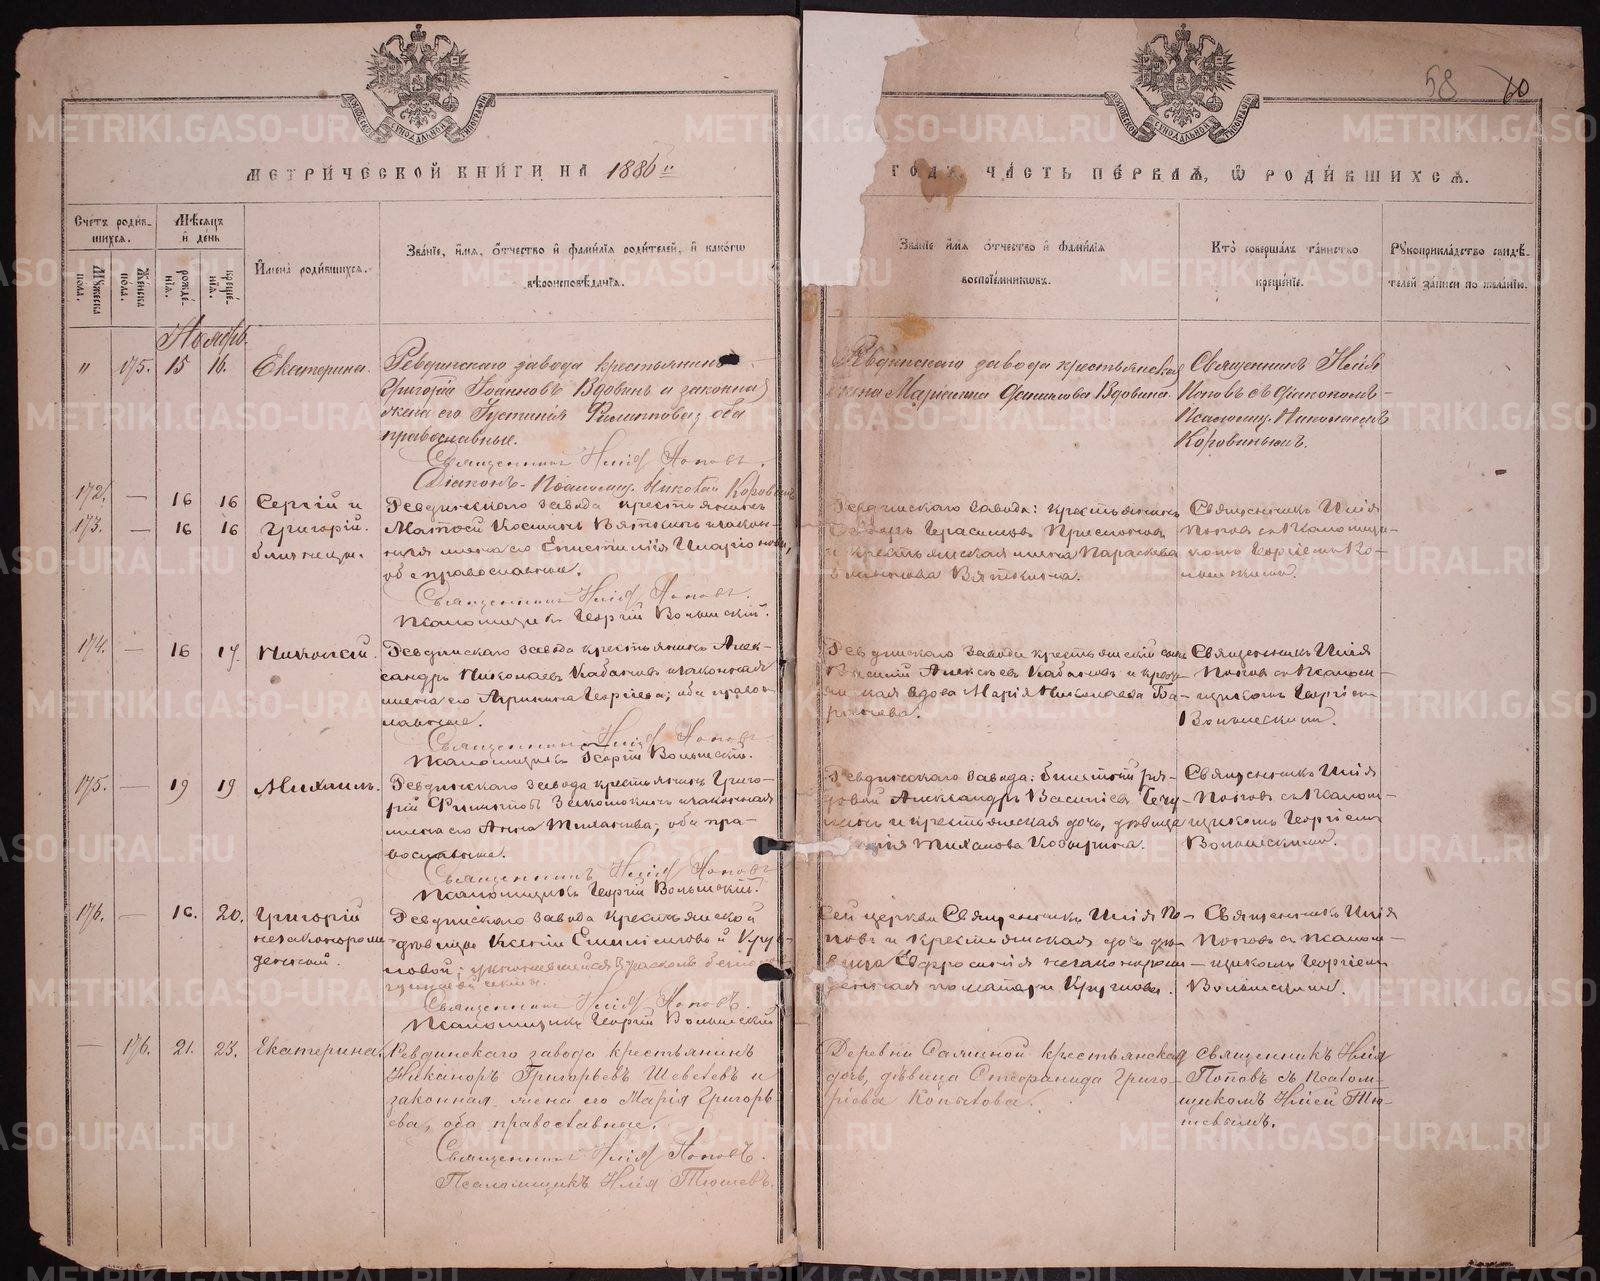 58 60
МЕТРИЧЕСКОЙ КНИГИ НА 1886 й
ГОДЪ, ЧАСТЬ ПЕРВАЯ, Ѡ РОДИВШИХСЯ.
Счетъ родив-
шихся.
Мужеска пола.
Женска пола.
Мѣсяцъ
и день
рождения.
крещения.
Имена родившихся.
Званіе, имя, отчество и фамилія родителей, и какогѡ
вѣроисповѣданія.
Званіе имя отчество и фамилія
воспріемниковъ.
Кто совершалъ таинство
крещеніе.
Рукоприкладство свидѣ-
телей записи по желанію.
Ноябрь.
" 175. 15 16. Екатерина.
Ревдинскаго завода крестьянинъ
Григорій Іоанновъ Вдовинъ и законная
жена его Іустинія Филиппова, оба
православные.
Священникъ Илія Поповъ.
Діаконъ-Псаломщ. Николай Коровинъ
Ревдинскаго завода крестьянская
жена Маріанна Данилова Вдовина.
Священникъ Илія
Поповъ съ діакономъ-
Псаломщ. Николаемъ
Коровинымъ.
172. — 16 16 Сергій и
173. — 16 16 Григорій.
близнецы.
Ревдинскаго завода крестьянинъ
Матѳей Косминъ Вяткинъ и закон-
ная жена его Епистимія Иларіонова,
оба православные.
Священникъ Илія Поповъ.
Псаломщикъ Георгій Волынскій.
Ревдинскаго завода: крестьянинъ
Герасимовъ
и крестьянская жена Параскева
Вяткина.
Священникъ Илія
Поповъ съ Псаломщи-
комъ Георгіемъ Во-
лынскимъ.
174. — 16 17. Николай.
Ревдинскаго завода крестьянинъ Алек-
сандръ Николаевъ Кабановъ и законная
жена его Агрипина Георгіева; оба право-
славные.
Священникъ Илія Поповъ
Псаломщикъ Георгій Волынскій.
Ревдинскаго завода крестьянскій сынъ
Василій Алексѣевъ Кабановъ и кресть-
янская вдова Марія Николаева
Священникъ Илія
Поповъ съ Псалом-
щикомъ Георгіемъ
Волынскимъ.
175. — 19 19 Михаилъ.
Ревдинскаго завода крестьянинъ Григо-
рій Филиппов и законная
жена его Анна; оба пра-
вославные.
Священникъ Илія Поповъ
Псаломщикъ Георгій Волынскій.
Ревдинскаго завода: билетный ря-
довой Александръ Василіев
и крестьянская дочь, дѣвица
Козырина.
Священникъ Илія
Поповъ съ Псалом-
щикомъ Георгіемъ
Волынскимъ.
176. — 16. 20. Григорій
незаконорож-
денный.
Ревдинскаго завода крестьянской
дѣвицы Ксеніи
Священникъ Илія Поповъ.
Псаломщикъ Георгій Волынскій
Сей церкви Священникъ Илія По-
повъ и крестьянская дочь дѣ-
вица Евфросинія незаконорож-
денная по матери
Священникъ Илія
Поповъ съ Псалом-
щикомъ Георгіемъ
Волынскимъ.
— 176. 21. 23. Екатерина.
Ревдинскаго завода крестьянинъ
Никаноръ Григорьевъ Шевелевъ и
законная жена его Марія Григорь-
ева, оба православные.
Священникъ Илія Поповъ.
Псаломщикъ Илія Тюшевъ.
Деревни крестьянская
дочь, дѣвица Стефанида Григо-
ріева Копытова.
Священникъ Илія
Поповъ съ Псалом-
щикомъ Иліей Тю-
шевымъ.
METRIKI.GASO-URAL.RU